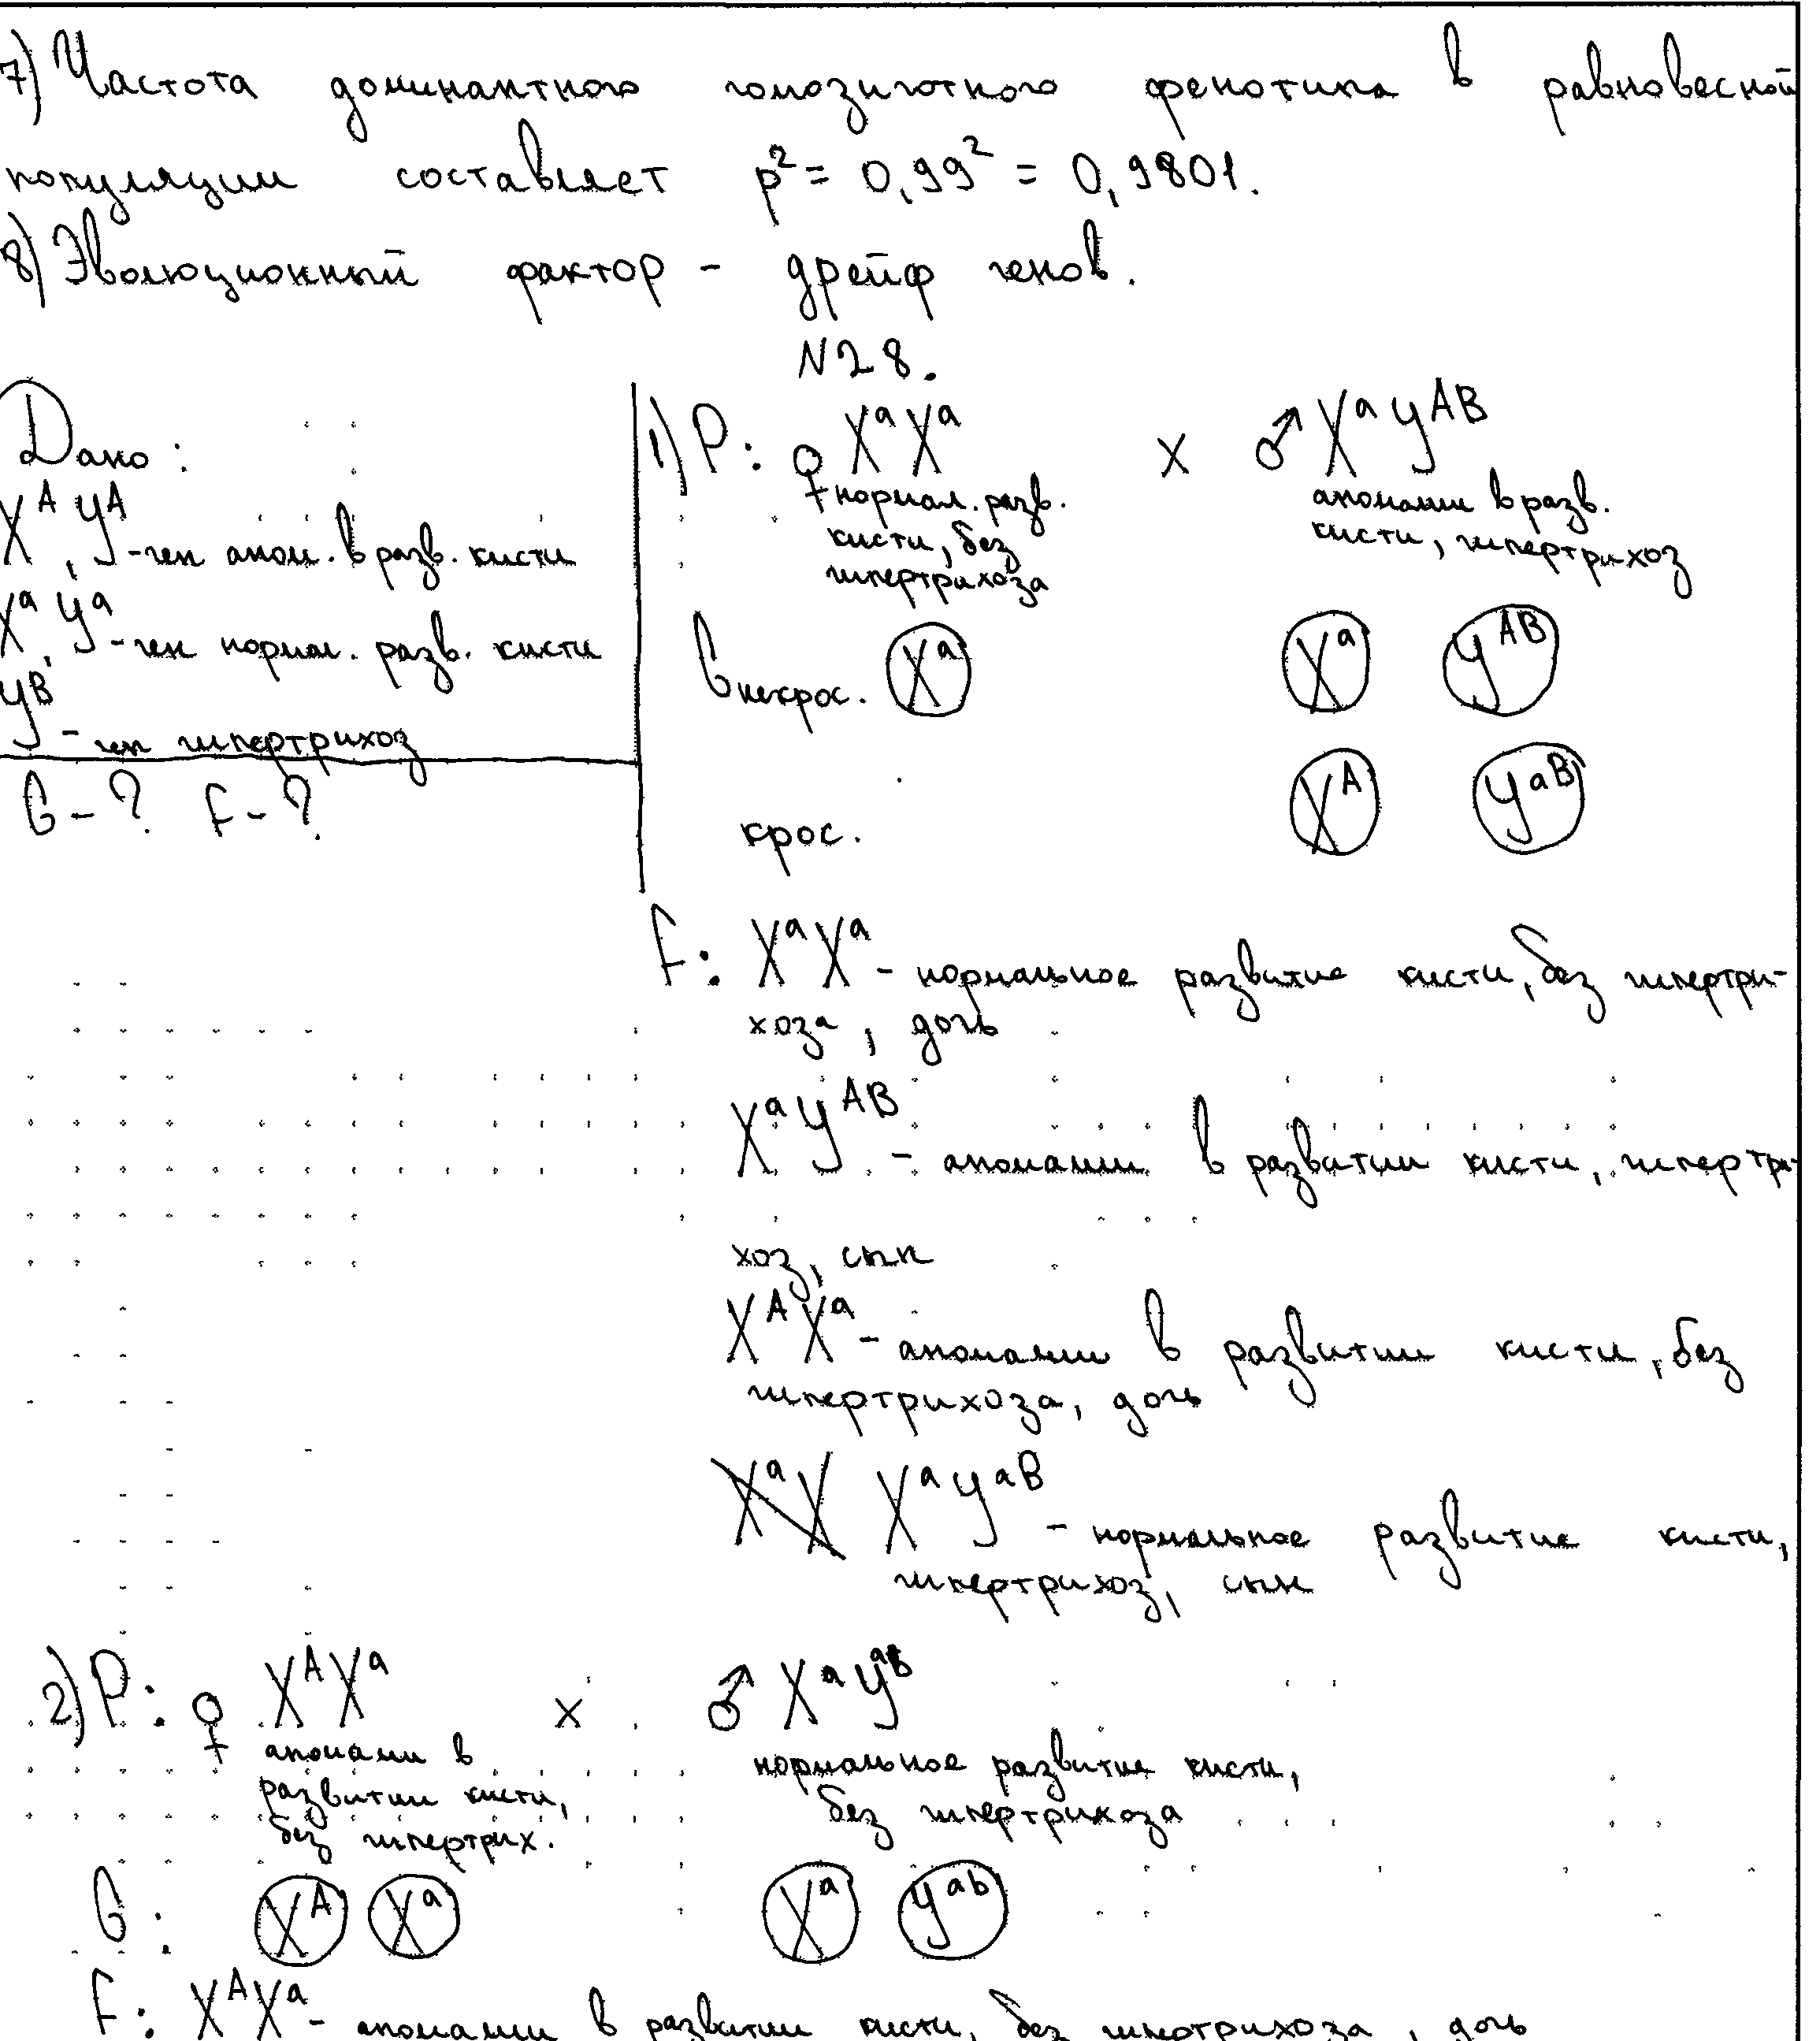 7) Частота доминантного гомозиготного фенотипа в равновесной
популяции составляет p² = 0,99² = 0,9801.
8) Эволюционный фактор - дрейф генов.
N28.
Дано:
X^A, Y^A - ген аном. в разв. кисти
X^a, Y^a - ген нормал. разв. кисти
Y^B - ген гипертрихоз
G - ? F - ?
1) P: ♀ X^a X^a x ♂ X^a Y^AB
нормал. разв. кисти, без гипертрихоза
аномалии в разв. кисти, гипертрихоз
G некрос. X^a X^a Y^AB
крос. X^A Y^aB
F: X^a X^a - нормальное развитие кисти, без гипертри-
хоза, дочь
X^a Y^AB - аномалии в развитии кисти, гипертри-
хоз, сын
X^A X^a - аномалии в развитии кисти, без
гипертрихоза, дочь
X^a Y^aB - нормальное развитие кисти,
гипертрихоз, сын
2) P: ♀ X^A X^a x ♂ X^a Y^ab
аномалии в
развитии кисти,
без гипертрих.
нормальное развитие кисти,
без гипертрихоза
G: X^A X^a X^a Y^ab
F: X^A X^a - аномалии в развитии кисти, без гипертрихоза, дочь